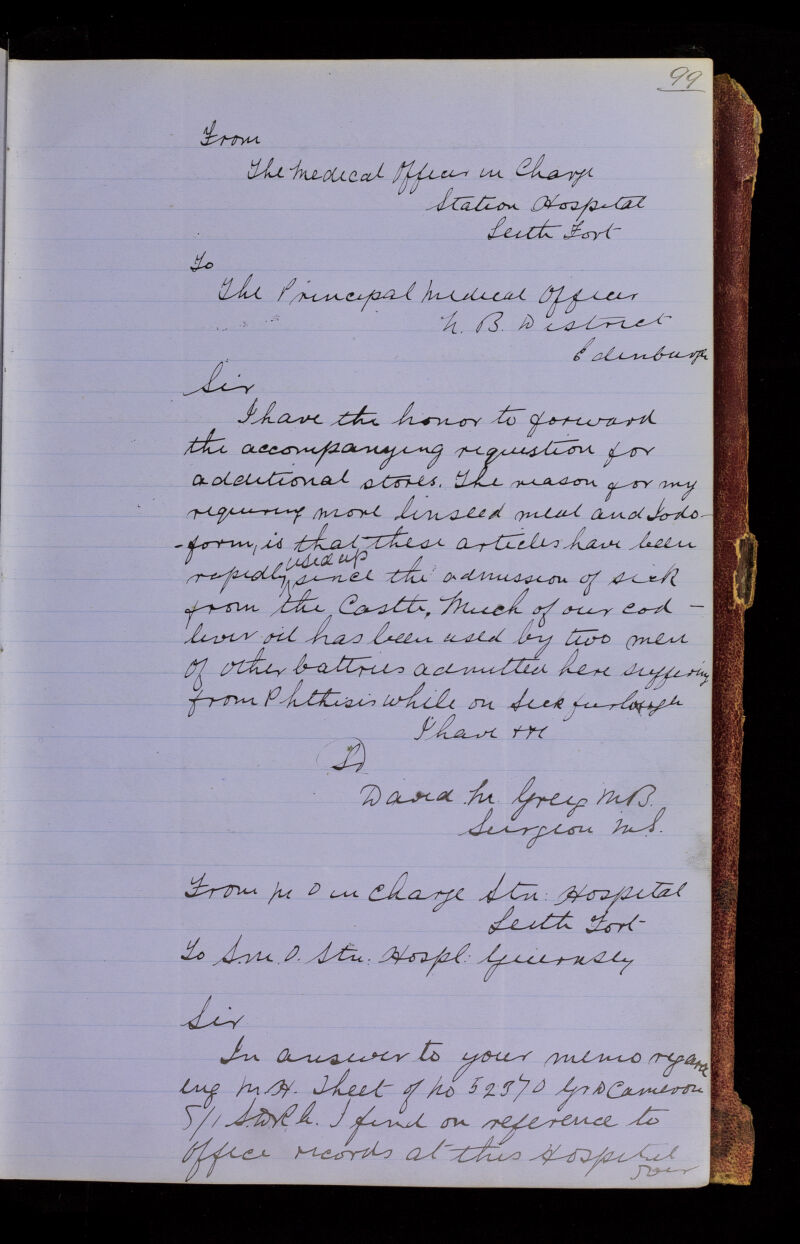 99
From
The Medical Officer in Charge
Station Hospital
Leith Fort
To
The Principal Medical Officer
N. B. District
Edinburgh
Sir
I have the honor to forward
the accompanying requistion for
additional stores. The reason for my
requiring more linseed meal and Iodo-
-form, is that these articles have been
used up
rapidly since the admission of sick
from the Castle. Much of our cod -
liver oil has been used by two men
of other battries admitted here suffering
from Phthisis while on sick furlough
I have &c
Sd
David M. Greig M.B.
Surgeon M.S.
From M O in Charge Stn: Hospital
Leith Fort
To S.M.O. Stn: Hospl: Guernsey
Sir
In answer to your memo regard
ing M.H. Sheet of No 52370 Gr D Cameron
5/1 I find on reference to
office records at this Hospital
over